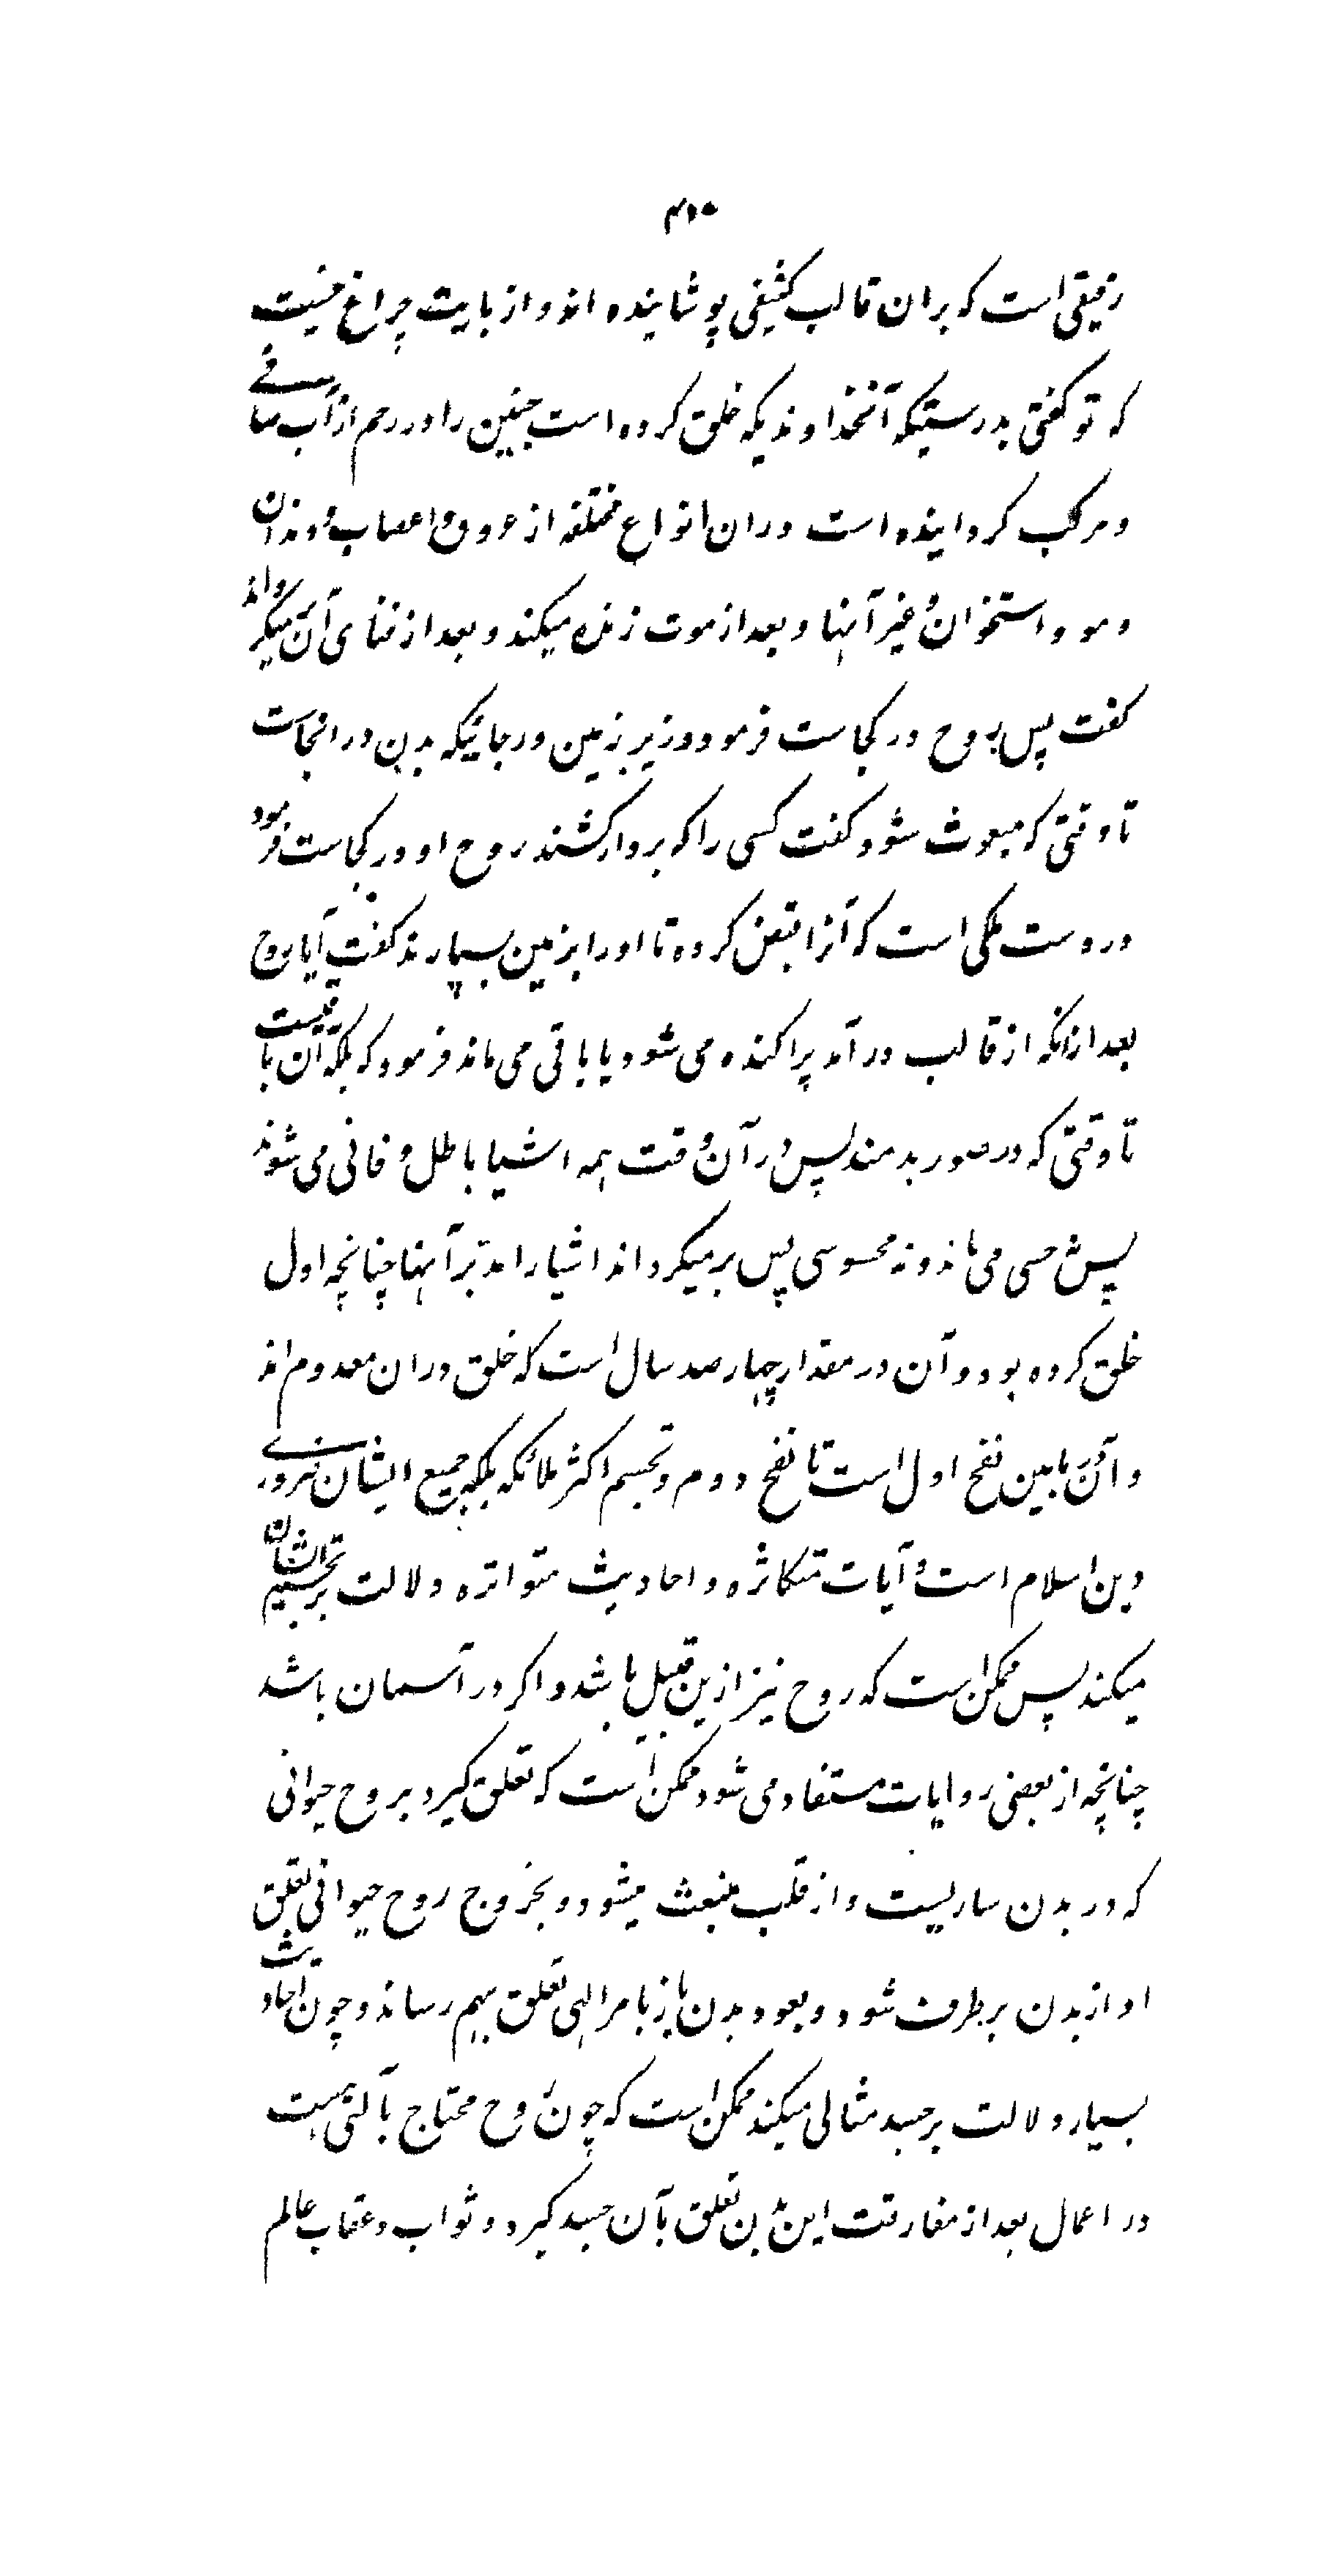 ۴۵۰
رقیقی است که بران قالب کثیفی پوشانیده اند و از بابت چراغ نیست
که تو گفتی بدرستیکه آنخداوندیکه خلق کرده است جنین را در رحم از آب صافے
و مرکب گردانیده است دران انواع مختلفه از عروق و اعصاب و دندان
و مو و استخوان و غیر آنها و بعد از موت زنده میکند و بعد از فنای آن میگرداند
گفت پس روح در کجاست فرمود در زیر زمین در جائیکه بدن در انجاست
تا وقتی که مبعوث شود گفت کسی را که بردار کشند روح او در کجاست فرمود
در دست ملکی است که آنرا قبض کرده تا او را بزمین بسپارند گفت آیا روح
بعد ازانکه از قالب در آمد پراکنده می شود یا باقی می ماند فرمود که بلکه آن باقیست
تا وقتی که در صور بدمند پس در آن وقت همه اشیا باطل و فانی می شوند
پس نه حسی می ماند و نه محسوسی پس بر میگرداند اشیا را مدبر آنها چنانچه اول
خلق کرده بود و آن در مقدار چهار صد سال است که خلق دران معدوم اند
و آن مابین نفخ اول است تا نفخ دوم و تجسم اکثر ملائکه بلکه جمیع ایشان ضروری
دین اسلام است و آیات متکاثره و احادیث متواتره دلالت بر تجسم ایشان
میکند پس ممکن است که روح نیز ازین قبیل باشد و اگر در آسمان باشد
چنانچه از بعضی روایات مستفاد می شود ممکن است که تعلق گیرد بروح حیوانی
که در بدن ساریست و از قلب منبعث میشود و بخروج روح حیوانی تعلق
او از بدن برطرف شود و بعود بدن باز بامر الهی تعلق بهم رساند و چون احادیث
بسیار دلالت بر جسد مثالی میکند ممکن است که چون روح محتاج بآلتی هست
در اعمال بعد از مفارقت این بدن تعلق بآن جسد گیرد و ثواب و عقاب عالم